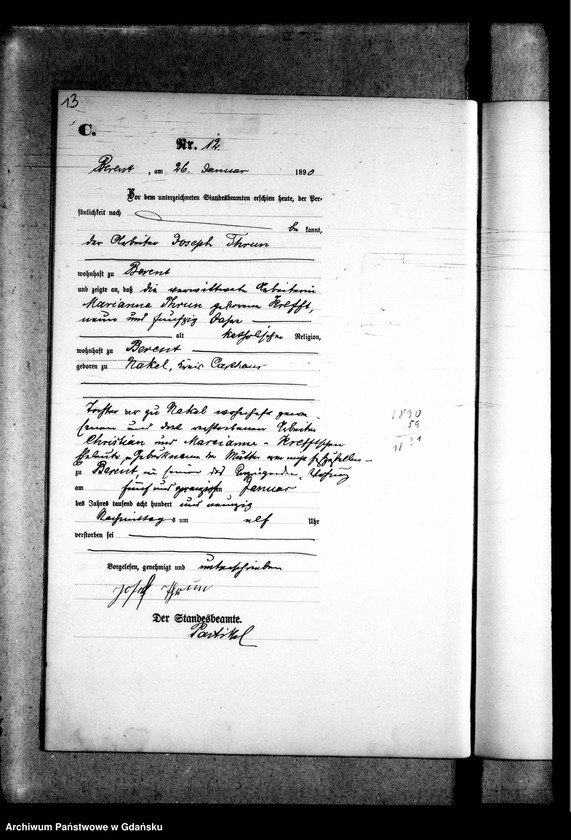 13
C.
Nr. 12.
Berent, am 26. Januar 1890
Vor dem unterzeichneten Standesbeamten erschien heute, der Per-
sönlichkeit nach
be kannt,
der Arbeiter Joseph Thrun
wohnhaft zu Berent
und zeigte an, daß die verwittwete Arbeiterin
Marianna Thrun geborene Krefft,
neun und fünfzig Jahre
alt katholischer Religion,
wohnhaft zu Berent
geboren zu Nakel, Kreis Carthaus
Tochter der zu Nakel wohnhaft gewe-
senen und dort verstorbenen Arbeiter
Christian und Marianna Krefftschen
Eheleute, Geburtsname der Mutter war nicht festzustellen
zu Berent, in seiner des Anzeigenden, Wohnung
am fünf und zwanzigsten Januar
des Jahres tausend acht hundert und neunzig
Nachmittags um elf Uhr
verstorben sei
Vorgelesen, genehmigt und unterschrieben
Josef Thrun
Der Standesbeamte.
Partikel
1890
59
1831
Archiwum Państwowe w Gdańsku